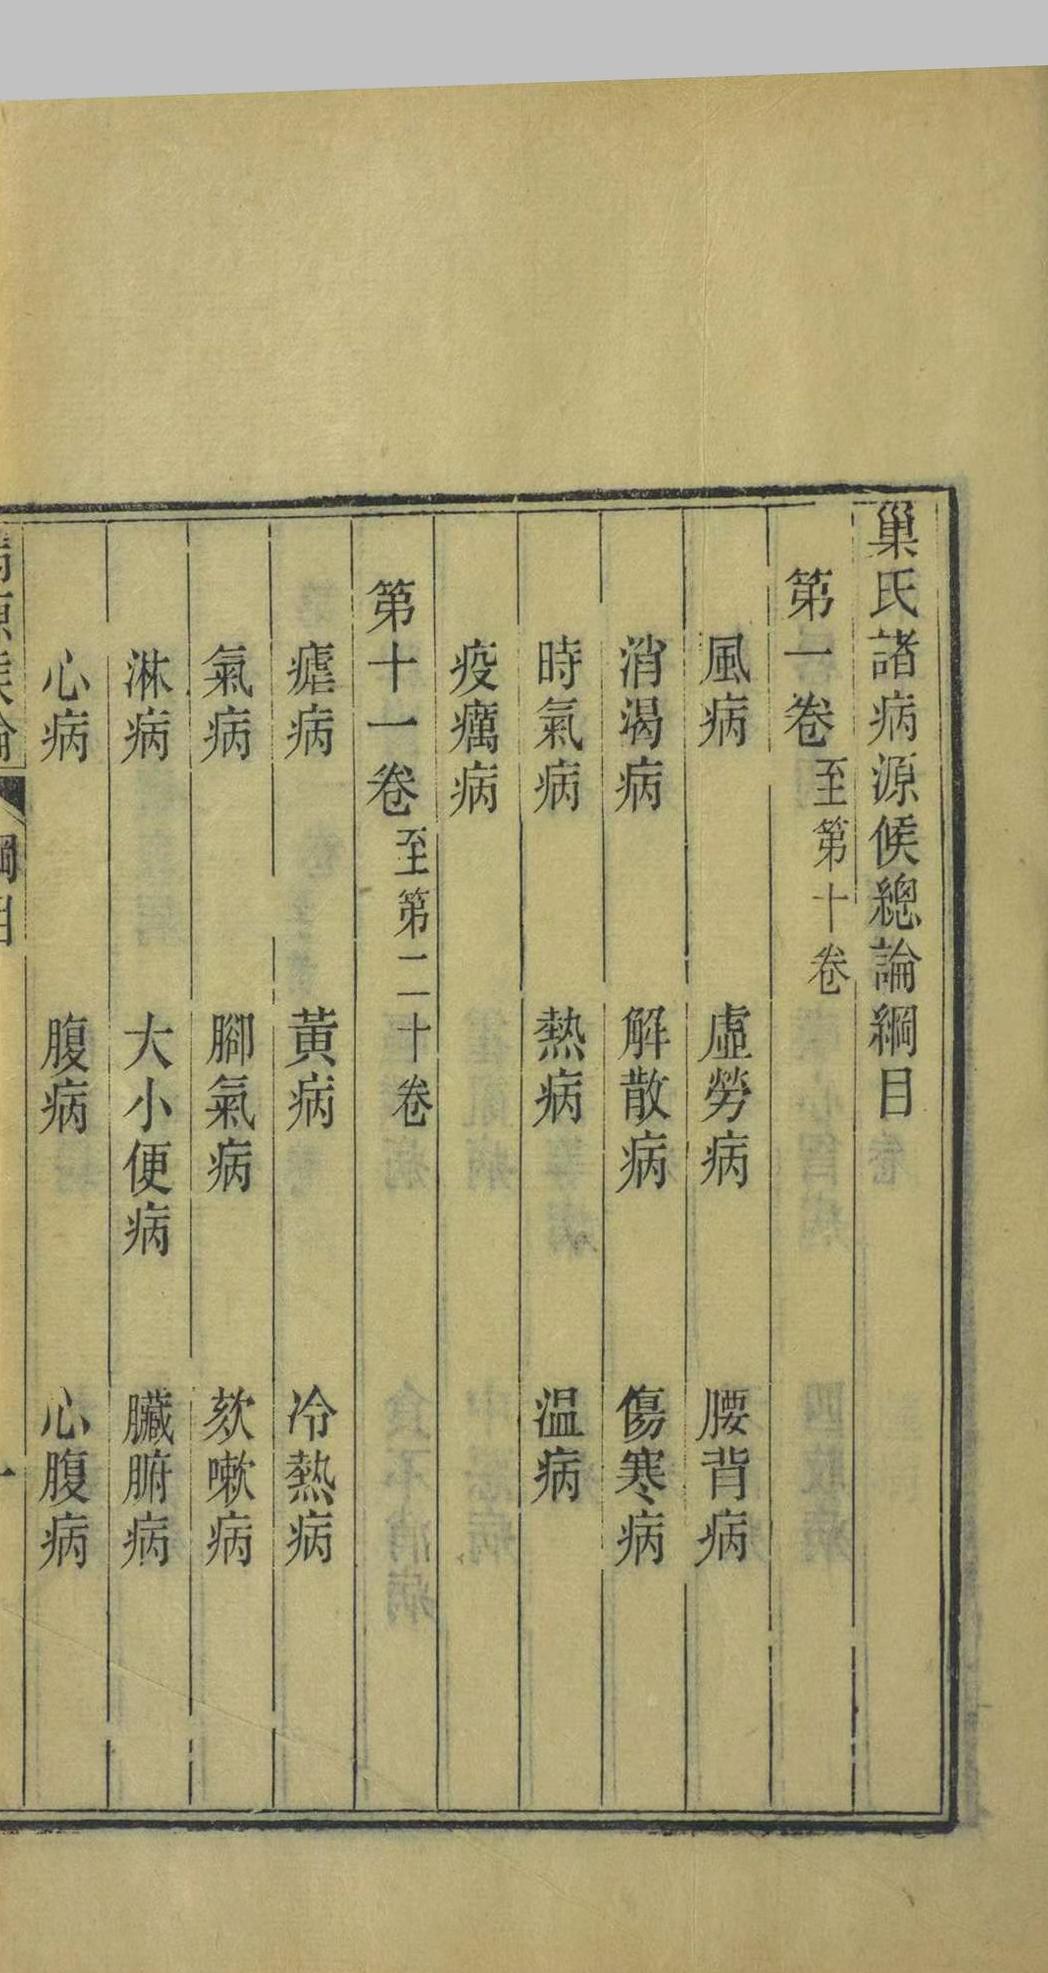 巢氏諸病源候總論綱目
第一卷至第十卷
風病 虛勞病 腰背病
消渴病 解散病 傷寒病
時氣病 熱病 温病
疫癘病
第十一卷至第二十卷
瘧病 黃病 冷熱病
氣病 腳氣病 欬嗽病
淋病 大小便病 臟腑病
心病 腹病 心腹病